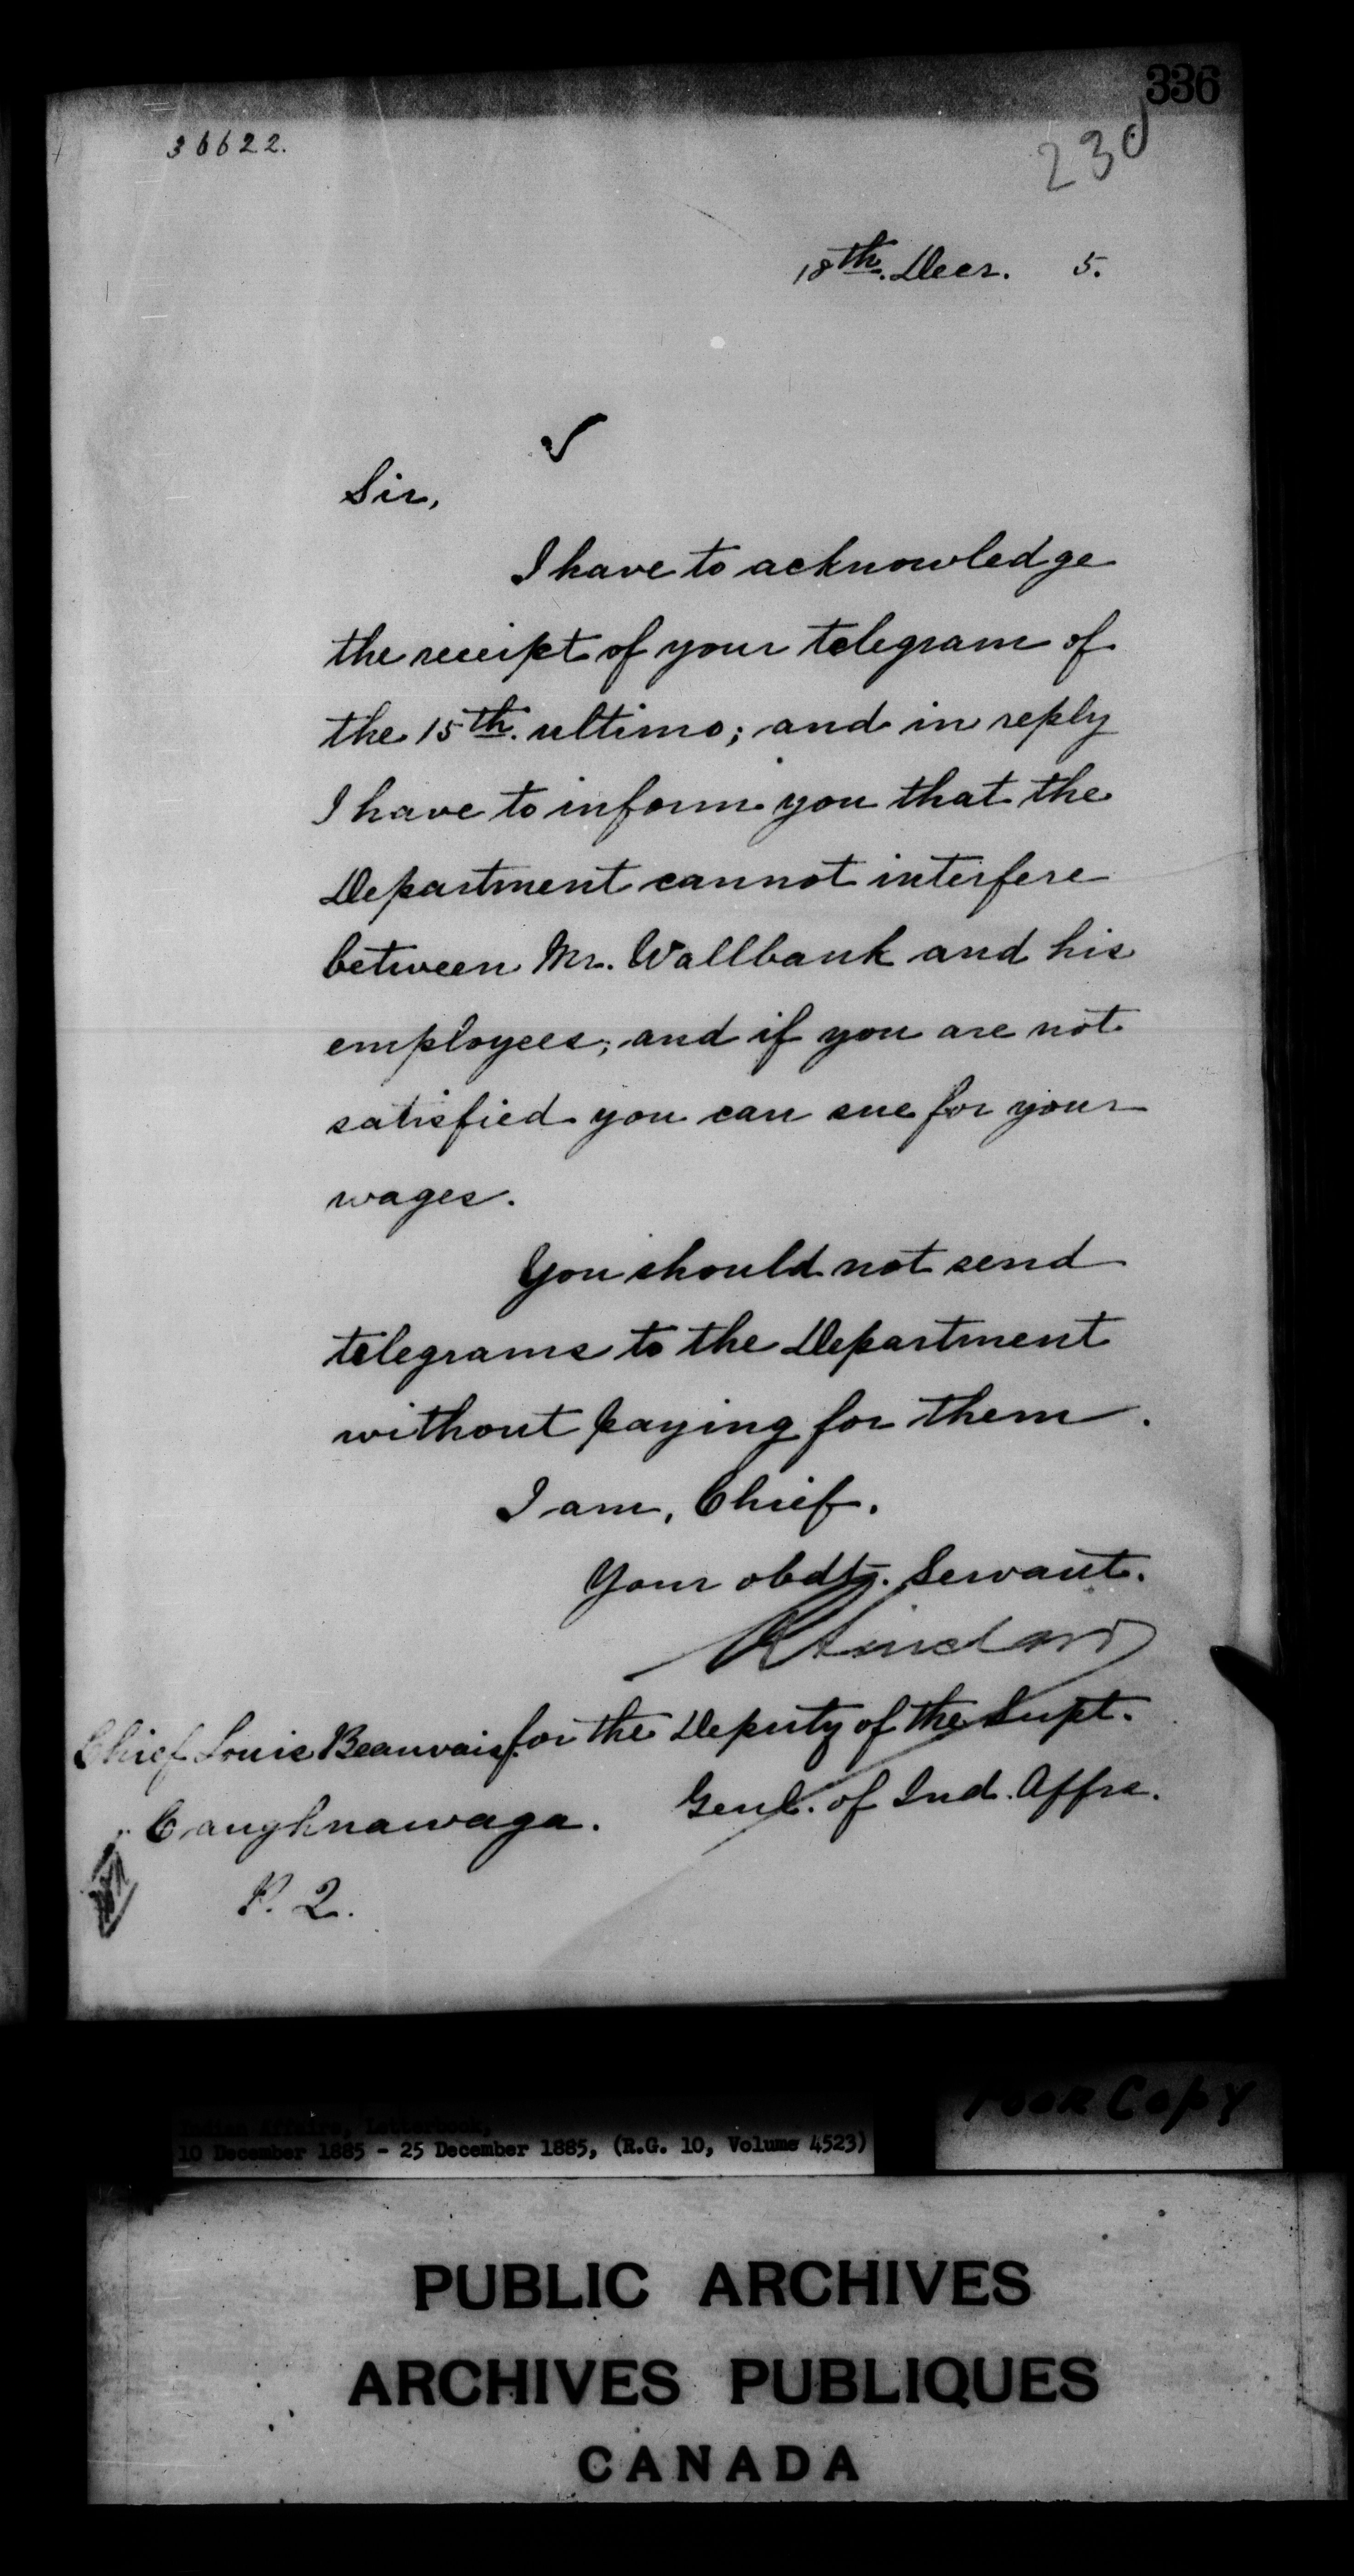 336
36622.
230
18th. Decr. 5.
Sir,
I have to acknowledge
the receipt of your telegram of
the 15th. ultimo; and in reply
I have to inform you that the
Department cannot interfere
between Mr. Wallbank and his
employees; and if you are not
satisfied you can sue for your
wages.
You should not send
telegrams to the Department
without paying for them.
I am, Chief.
Your obdt. Servant.
for the Deputy of the Supt.
Genl. of Ind. Affrs.
Chief Louis Beauvais
Caughnawaga.
P. 2.
Indian Affairs, Letterbook,
10 December 1885 - 25 December 1885, (R.G. 10, Volume 4523)
POOR COPY
PUBLIC ARCHIVES
ARCHIVES PUBLIQUES
CANADA